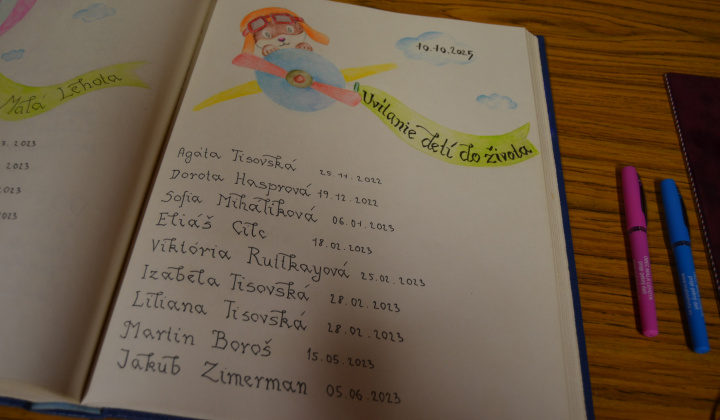 Malá Lehota
2023
2023
2023
2023
10.10.2025
Uvítanie detí do života
Agáta Tisovská 25.11.2022
Dorota Hasprová 19.12.2022
Sofia Mihaliková 06.01.2023
Eliáš Cílc 18.02.2023
Viktória Ruttkayová 25.02.2023
Izabela Tisovská 28.02.2023
Liliana Tisovská 28.02.2023
Martin Boroš 15.05.2023
Jakub Zimerman 05.06.2023